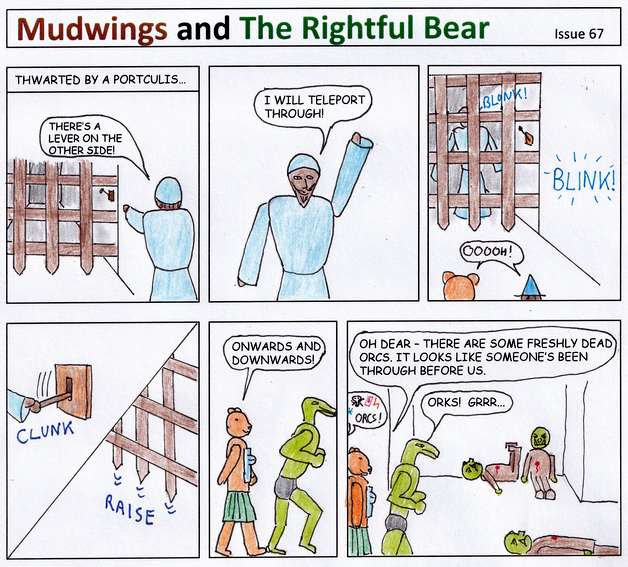 Mudwings and The Rightful Bear
Issue 67
THWARTED BY A PORTCULIS...
THERE'S A
LEVER ON THE
OTHER SIDE!
I WILL TELEPORT
THROUGH!
BLONK!
BLINK!
OOOOH!
CLUNK
RAISE
ONWARDS AND
DOWNWARDS!
OH DEAR - THERE ARE SOME FRESHLY DEAD
ORCS. IT LOOKS LIKE SOMEONE'S BEEN
THROUGH BEFORE US.
ORCS!
ORKS! GRRR...